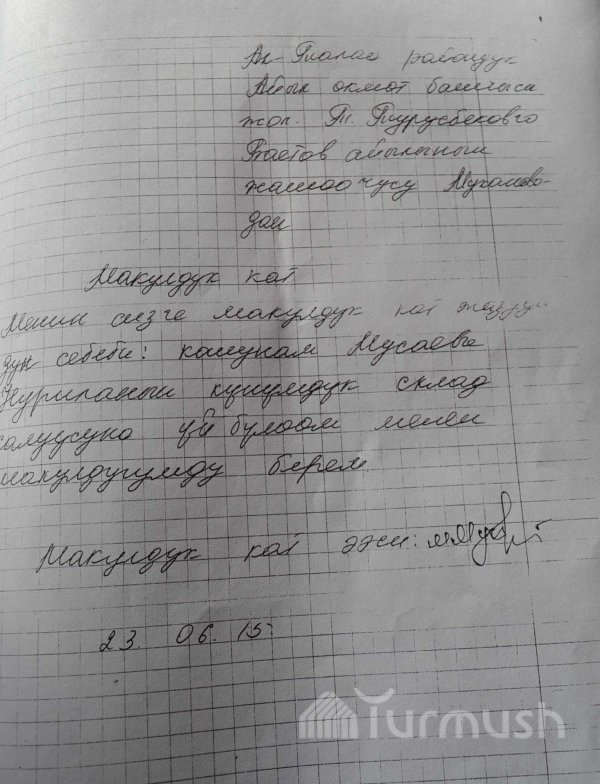 Ак-Талаа райондук
Айыл окмот башчысы
жол. Т. Турусбековго
Баетов айылынын
жашоочусу Мукамбо-
дан
Макулдук кат
Менин сизге макулдук кат жазуум
дун себеби: кошунам Мусаева
Нурипанын курулуш склад
алуусуна үй бүлөөм менен
макулдугумду берем
Макулдук кат ээси:
23. 06. 15.
Turmush